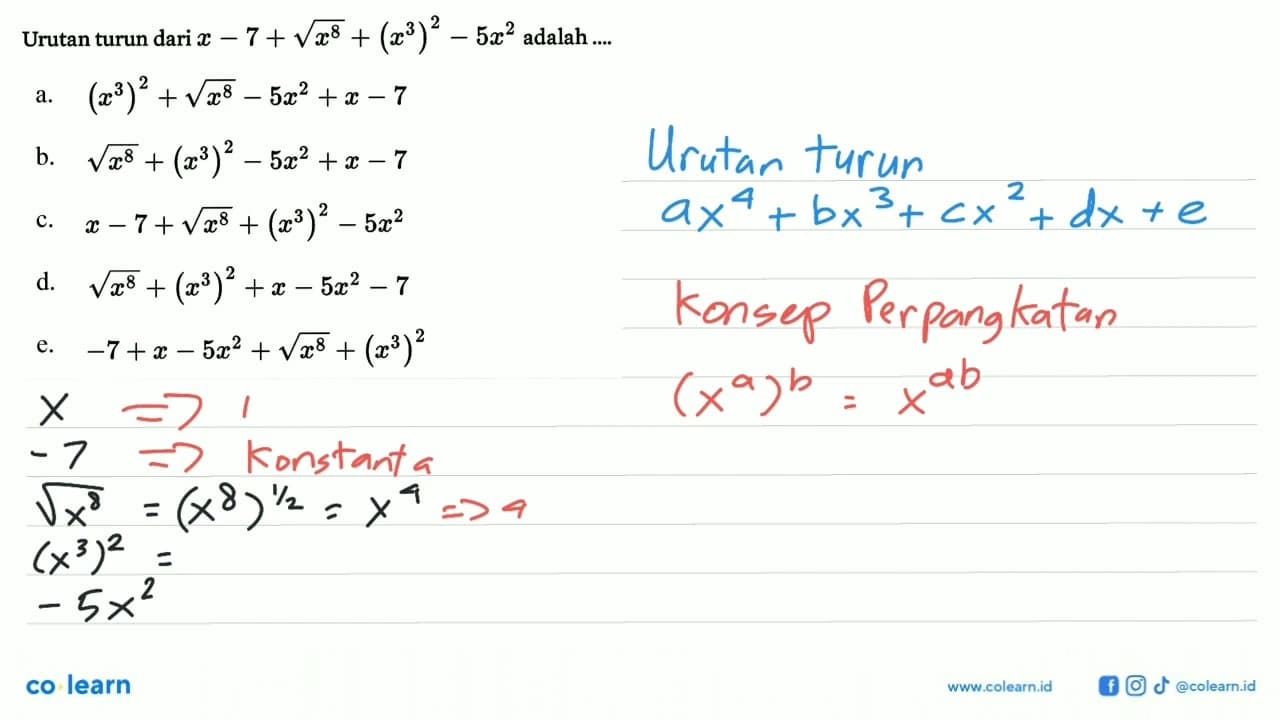 Urutan turun dari x − 7 + √x⁸ + (x³)² − 5x² adalah ....
a. (x³)² + √x⁸ − 5x² + x − 7
b. √x⁸ + (x³)² − 5x² + x − 7
c. x − 7 + √x⁸ + (x³)² − 5x²
d. √x⁸ + (x³)² + x − 5x² − 7
e. −7 + x − 5x² + √x⁸ + (x³)²
Urutan turun
ax⁴ + bx³ + cx² + dx + e
Konsep Perpangkatan
(xᵃ)ᵇ = xᵃᵇ
x => 1
- 7 => Konstanta
√x⁸ = (x⁸)^½ = x⁴ => 4
(x³)² =
- 5x²
co·learn
www.colearn.id @colearn.id